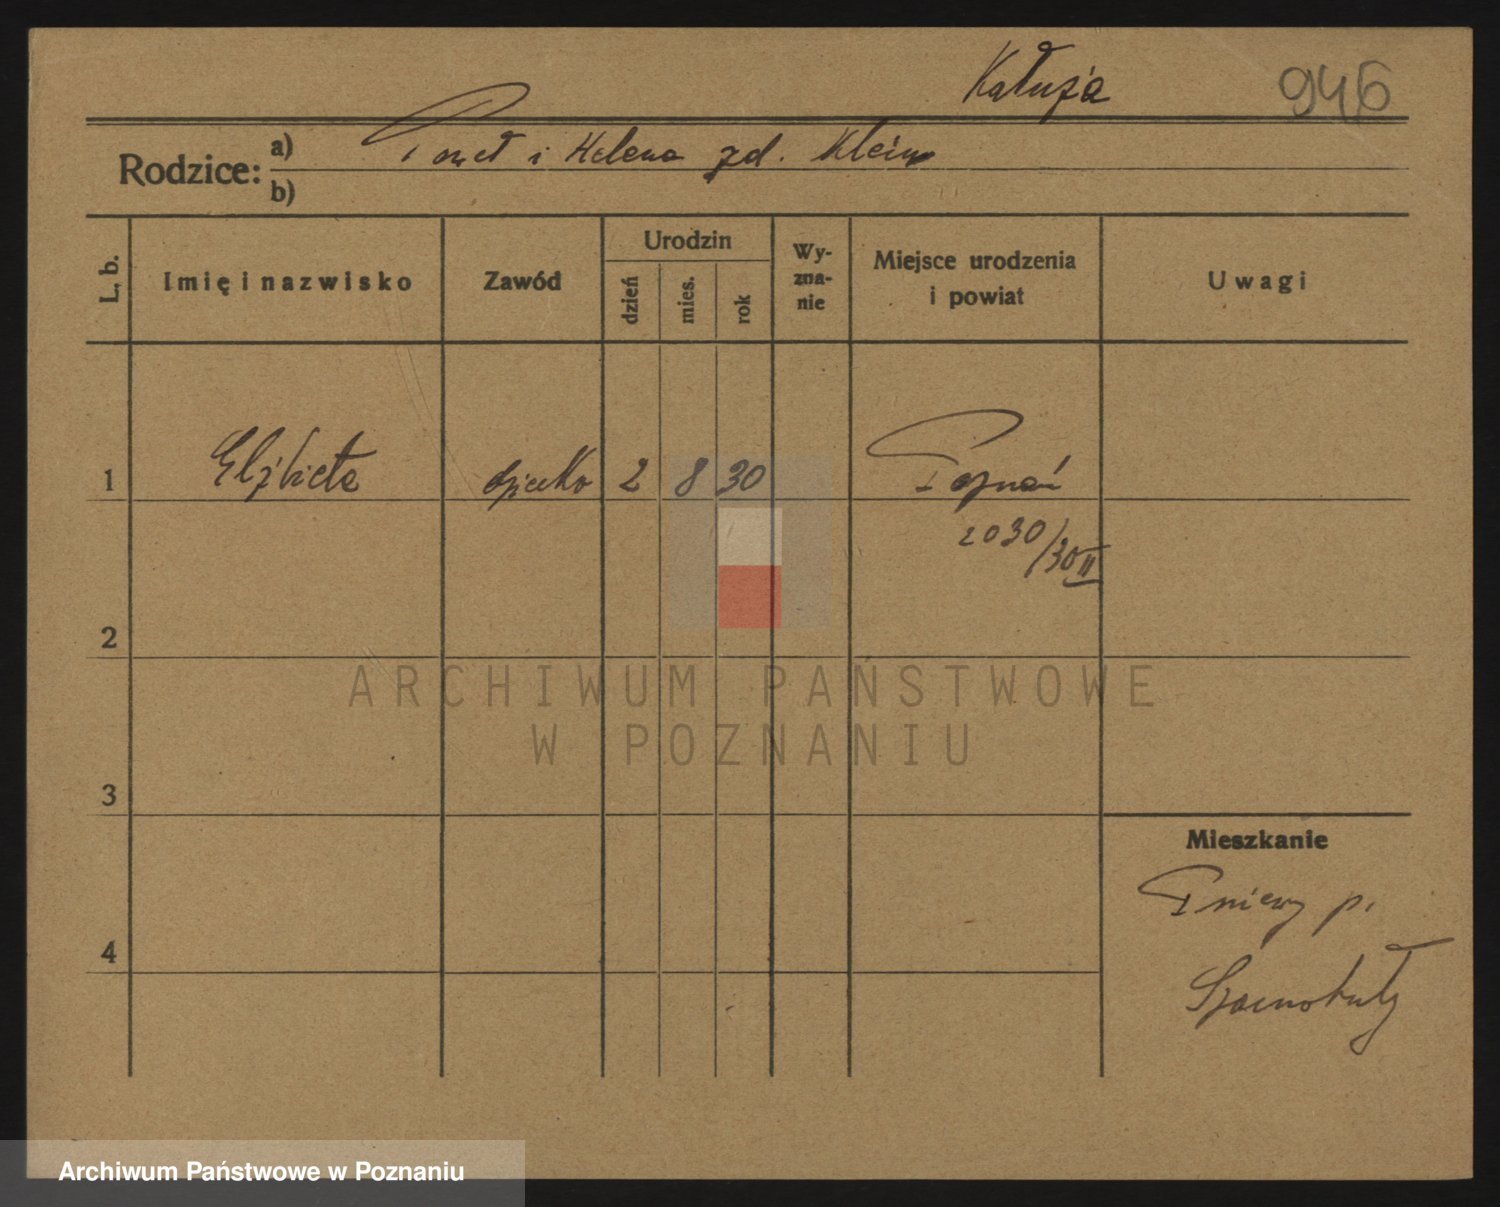 Kałuża 946
Rodzice: a) Paweł i Helena zd. Klein
b)
L. b. Imię i nazwisko Zawód Urodzin dzień mies. rok Wy-zna-nie Miejsce urodzenia i powiat Uwagi
1 Elżbieta dziecko 2 8 30 Poznań
2030/30 II
2
ARCHIWUM PAŃSTWOWE
W POZNANIU
3
Mieszkanie
Pniewy p.
4
Szamotuły
Archiwum Państwowe w Poznaniu